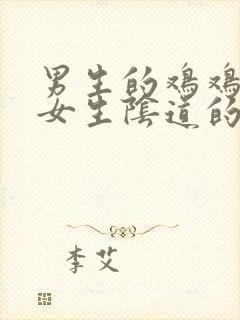 男生的鸡鸡
女生陰道的
李艾